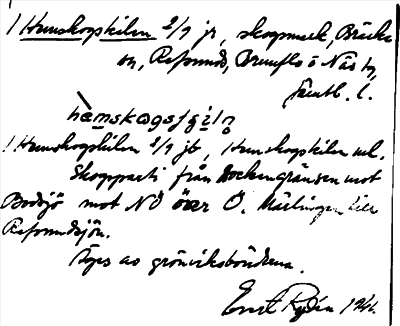 ! Hemskogskilen 2/7 jr, skogsmark, Bräcke
sn, Refsunds, Brunflo o Näs tg,
Jämtl. l.
hèmskogsçil
! Hemskogskilen 2/7 jb, Hemskogskilen ml.
Skogsparti från sockengränsen mot
Bodsjö mot NÖ över Ö. till
Refsundsjön.
Äges av grönviksbönderna.
Ernst Rydén 1941.